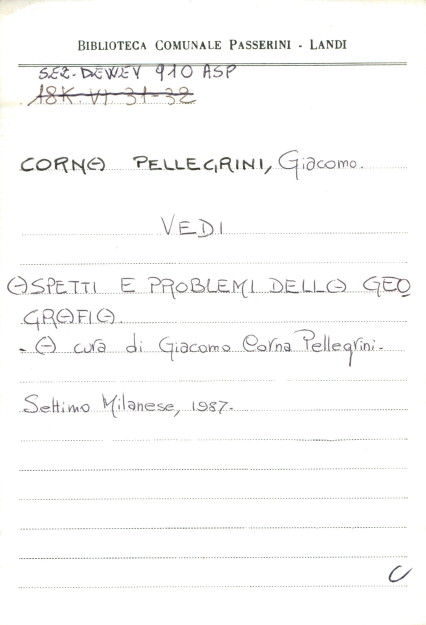 BIBLIOTECA COMUNALE PASSERINI - LANDI
SEZ. DEWEY 910 ASP
18K. VI 31-32
CORNA PELLEGRINI, Giacomo.
VEDI
ASPETTI E PROBLEMI DELLA GEO
GRAFIA.
- A cura di Giacomo Corna Pellegrini.
Settimo Milanese, 1987.
C